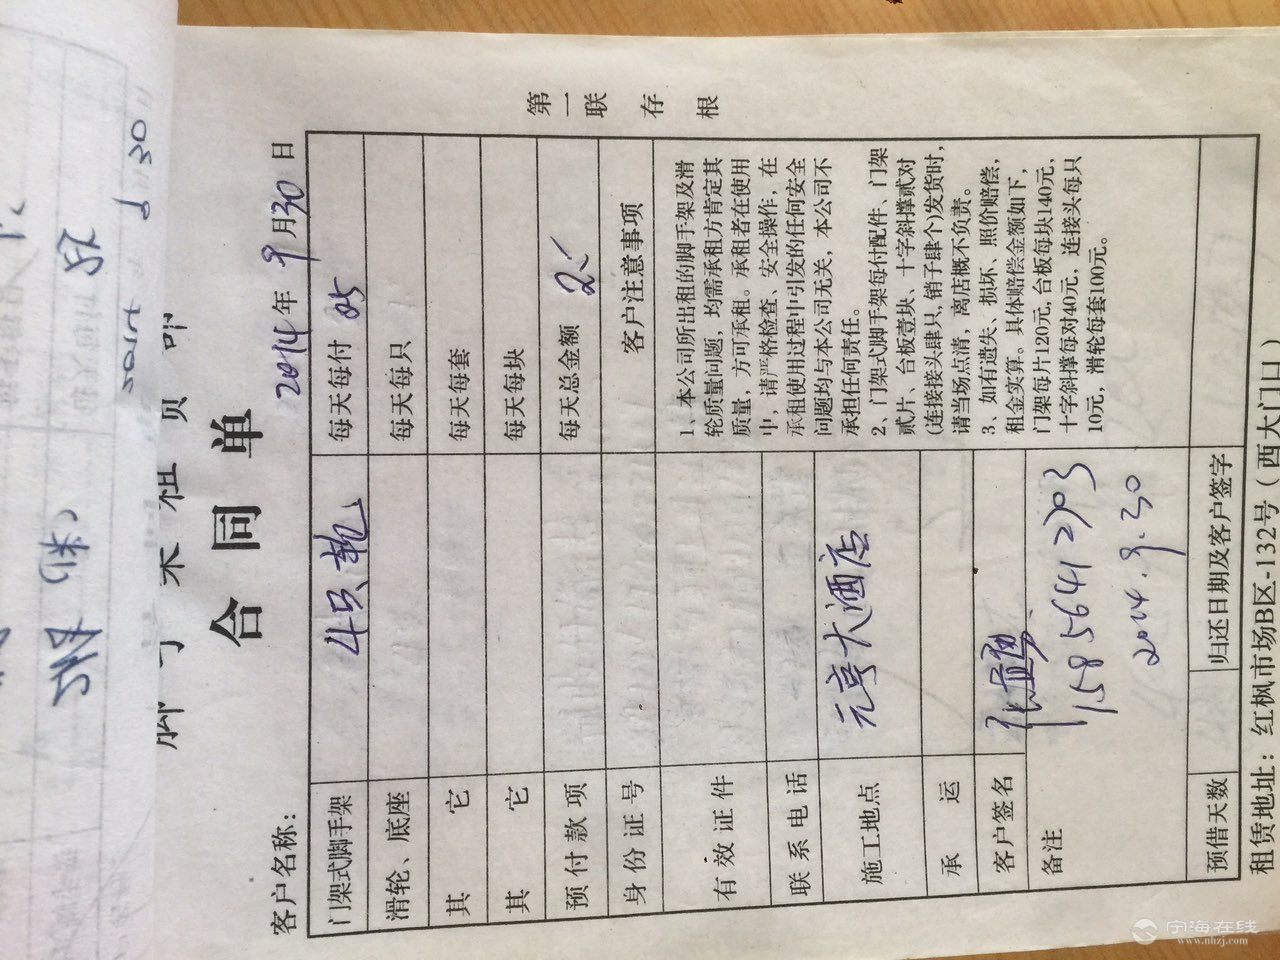 合同单
第一联 存根
客户名称：
2014年9月30日
门架式脚手架 每天每付
滑轮、底座 每天每只
其它 每天每套
其它 每天每块
预付款项 每天总金额
身份证号 客户注意事项
有效证件
联系电话
施工地点 元亨大酒店
承运
客户签名
备注 15856412703
2014.9.30
1、本公司所出租的脚手架及滑
轮质量问题，均需承租方肯定其
质量，方可承租。承租者在使用
中，请严格检查、安全操作，在
承租使用过程中引发的任何安全
问题均与本公司无关，本公司不
承担任何责任。
2、门架式脚手架每付配件、门架
贰片、台板壹块、十字斜撑贰对
(连接接头肆只,销子肆个)发货时，
请当场点清，离店概不负责。
3、如有遗失、损坏、照价赔偿，
租金实算。具体赔偿金额如下，
门架每片120元,台板每块140元，
十字斜撑每对40元，连接头每只
10元，滑轮每套100元。
预借天数 归还日期及客户签字
租赁地址：红枫市场B区-132号（西大门口）
宁海在线
www.nhzj.com